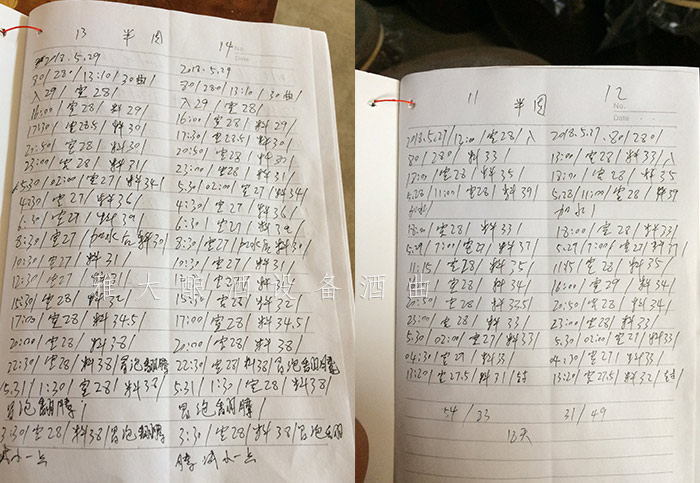 13 半周 14
No.
Date
2018.5.29
30/28/13:10/30曲/
入29/室28/
16:00/室28/料29/
17:30/室28.5/料30/
20:50/室28/料30/
23:00/室28/料31/
5.30/02:00/室27/料34/
4:30/室27/料36/
6:30/室27/料39/
8:30/室27/加水后料30/
10:30/室27/料31/
12:30/室27/料31/
15:30/室28/料32/
17:00/室28/料34.5/
20:00/室28/料38/
22:30/室28/料38/冒泡翻腾
5.31/1:30/室28/料38/
冒泡翻腾/
3:30/室28/料38/冒泡翻腾
减小一点
2018.5.29
30/280/13:10/30曲/
入29/室28/
16:00/室28/料29/
17:30/室28.5/料30/
20:50/室28/料30/
23:00/室28/料31/
5.30/02:00/室27/料34/
4:30/室27/料36/
6:30/室27/料39/
8:30/室27/加水后料30/
10:30/室27/料31/
15:30/室28/料32/
17:00/室28/料34.5/
20:00/室28/料38/
22:30/室28/料38/冒泡翻腾
5.31/1:30/室28/料38/
冒泡翻腾/
3:30/室28/料38/冒泡翻
腾减小一点
11 半周 12
No.
Date
2018.5.27/12:00/室28/入
30/280/料33/
18:00/室28/料35/
5.28/11:00/室28/料39/
加水/
18:00/室28/料33/
5.29/7:00/室27/料37/
11:15/室28/料35/
室28/料34/
20:50/室28/料33.5/
23:00/室28/料33/
5.30/02:00/室27/料33/
04:30/室27/料33/
13:20/室27.5/料31/封
54/33
2018.5.27.30/280/
13:00/室28/料33/入
18:00/室28/料35/
5.28/11:00/室28/料39
加水/
18:00/室28/料33/
5.29/7:00/室27/料37/
11:15/室28/料35/
16:00/室29/料34/
20:50/室28/料34/
23:00/室28/料33/
5.30/02:00/室27/料33/
04:30/室27/料33/
13:20/室27.5/料32/封
31/49
12天
雅大酿酒设备酒曲